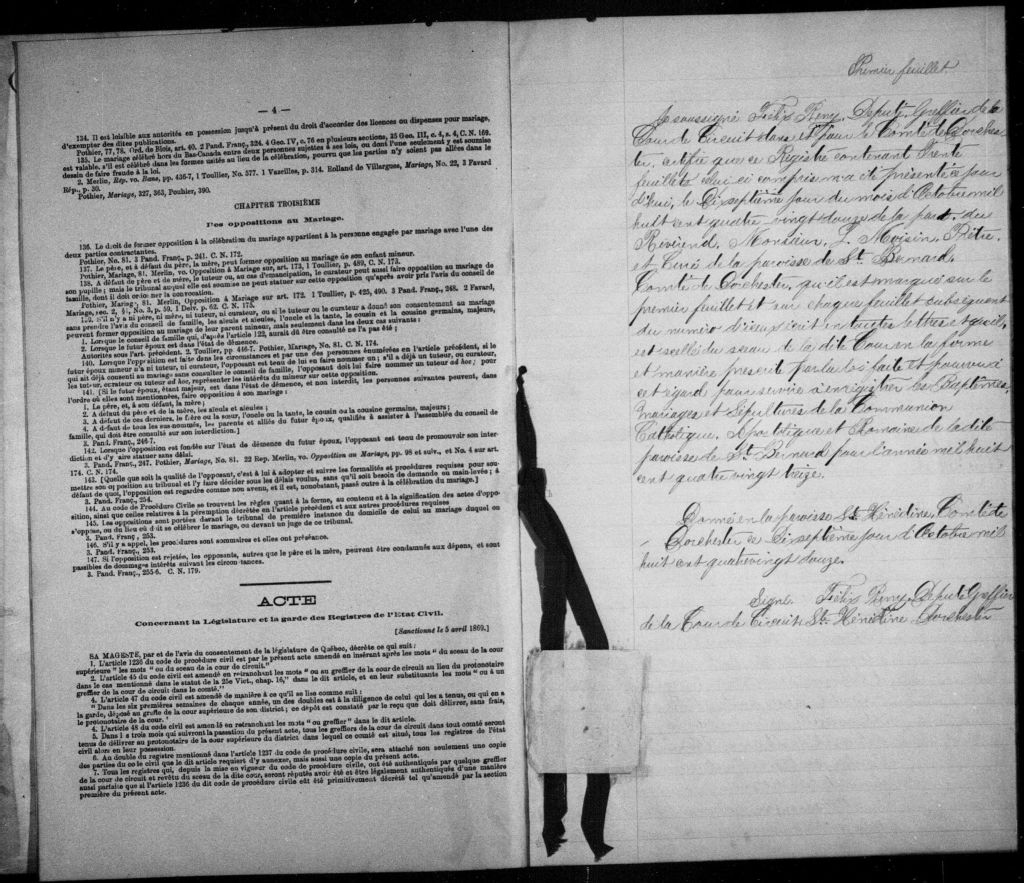 — 4 —
134. Il est loisible aux autorités en possession jusqu'à présent du droit d'accorder des licences ou dispenses pour mariage,
d'exempter des dites publications.
Pothier, 77, 78. Ord. de Blois, art. 40. 2 Pand. Franç., 324. 4 Geo. IV, c. 76 en plusieurs sections, 35 Geo. III, c. 4, s. 4, C. N. 169.
135. Le mariage célébré hors du Bas-Canada entre deux personnes sujettes à ses lois, ou dont l'une seulement y est soumise
est valable, s'il est célébré dans les formes usités au lieu de la célébration, pourvu que les parties n'y soient pas allées dans le
dessein de faire fraude à la loi.
2. Merlin, Rép. vo. Bans, pp. 436-7, 1 Toullier, No. 577. 1 Vazeilles, p. 314. Rolland de Villargues, Mariage, No. 22, 3 Favard
Rép., p. 30.
Pothier, Mariage, 327, 363, Pouhier, 390.
CHAPITRE TROISIÈME
Des oppositions au Mariage.
136. Le droit de former opposition à la célébration du mariage appartient à la personne engagée par mariage avec l'une des
deux parties contractantes.
Pothier, No. 81. 3 Pand. Franç., p. 241. C. N. 172.
137. Le père, et à défaut du père, la mère, peut former opposition au mariage de son enfant mineur.
Pothier, Mariage, 81. Merlin, vo. Opposition à Mariage sur art. 173, 1 Toullier, p. 489, C. N. 173.
138. A défaut de père et de mère, le tuteur ou, au cas d'émancipation, le curateur peut aussi faire opposition au mariage de
son pupille; mais le tribunal auquel elle est soumise ne peut statuer sur cette opposition qu'après avoir pris l'avis du conseil de
famille, dont il doit ordonner la convocation.
Pothier, Mariage, 81. Merlin, Opposition à Mariage sur art. 172. 1 Toullier, p. 425, 490. 3 Pand. Franç., 248. 2 Favard,
Mariage, sec. 2, §4, No. 3, p. 59. 1 Delv. p. 62. C. N. 175.
139. S'il n'y a ni père, ni mère, ni tuteur, ni curateur, ou si le tuteur ou le curateur a donné son consentement au mariage
sans prendre l'avis du conseil de famille, les aïeuls et aïeules, l'oncle et la tante, le cousin et la cousine germains, majeurs,
peuvent former opposition au mariage de leur parent mineur, mais seulement dans les deux cas suivants:
1. Lorsque le conseil de famille qui, d'après l'article 122, aurait dû être consulté ne l'a pas été;
2. Lorsque le futur époux est dans l'état de démence.
Autorités sous l'art précédent. 2 Toullier, pp. 446-7. Pothier, Mariage, No. 81. C. N. 174.
140. Lorsque l'opposition est faite dans le circonstances et par une des personnes énumérées en l'article précédent, si le
futur époux mineur n'a ni tuteur, ni curateur, l'opposant est tenu de lui en faire nommer un; s'il a déjà un tuteur, ou curateur,
qui ait déjà consenti au mariage sans consulter le conseil de famille, l'opposant doit lui faire nommer un tuteur ad hoc; pour
les tuteur, curateur ou tuteur ad hoc, représenter les intérêts du mineur sur cette opposition.
141. [Si le futur époux, étant majeur, est dans l'état de démence, et non interdit, les personnes suivantes peuvent, dans
l'ordre où elles sont mentionnées, faire opposition à son mariage:
1. Le père, et, à son défaut, la mère;
2. A défaut du père et de la mère, les aïeuls et aïeules;
3. A défaut de ces derniers, le frère ou la sœur, l'oncle ou la tante, le cousin ou la cousine germains, majeurs;
4. A défaut de tous les sus-nommés, les parents et alliés du futur époux, qualifiés à assister à l'assemblée du conseil de
famille, qui doit être consulté sur son interdiction.]
3. Pand. Franç., 246-7.
142. Lorsque l'opposition est fondée sur l'état de démence du futur époux, l'opposant est tenu de promouvoir son inter-
diction et d'y faire statuer sans délai.
3. Pand. Franç., 247. Pothier, Mariage, No. 81. 22 Rep. Merlin, vo. Opposition au Mariage, pp. 98 et suiv., et No. 4 sur art.
174. C. N. 174.
143. [Quelle que soit la qualité de l'opposant, c'est à lui à adopter et suivre les formalités et procédures requises pour sou-
mettre son opposition au tribunal et l'y faire décider sous les délais voulus, sans qu'il soit besoin de demande en main-levée; à
défaut de quoi, l'opposition est regardée comme non avenu, et il est, nonobstant, passé outre à la célébration du mariage.]
3. Pand. Franç., 254.
144. Au code de Procédure Civile se trouvent les règles quant à la forme, au contenu et à la signification des actes d'oppo-
sition, ainsi que celles relatives à la péremption décrétée en l'article précédent et aux autres procédures requises
145. Les oppositions sont portées devant le tribunal de première instance du domicile de celui au mariage duquel on
s'oppose, ou du lieu où doit se célébrer le mariage, ou devant un juge de ce tribunal.
3. Pand. Franç., 253.
146. S'il y a appel, les procédures sont sommaires et elles ont préséance.
3. Pand. Franç., 253.
147. Si l'opposition est rejetée, les opposants, autres que le père et la mère, peuvent être condamnés aux dépens, et sont
passibles de dommages intérêts suivant les circonstances.
3. Pand. Franç., 255-6. C. N. 179.
ACTE
Concernant la Législature et la garde des Registres de l'Etat Civil.
[Sanctionné le 5 avril 1869.]
SA MAGESTE, par et de l'avis du consentement de la législature de Québec, décrète ce qui suit:
1. L'article 1236 du code de procédure civil est par le présent acte amendé en insérant après les mots "du sceau de la cour
supérieure" les mots "ou du sceau de la cour de circuit."
2. L'article 45 du code civil est amendé en retranchant les mots "ou au greffier de la cour de circuit au lieu du protonotaire
dans le cas mentionné dans le statut de la 25e Vict., chap. 16," dans le dit article, et en leur substituants les mots "ou à un
greffier de la cour de circuit dans le comté."
3. L'article 47 du code civil est amendé de manière à ce qu'il se lise comme suit:
"Dans les six premières semaines de chaque année, un des doubles est à la diligence de celui qui les a tenus, ou qui en a
la garde, déposé au greffe de la cour supérieure de son district; ce dépôt est constaté par le reçu que doit délivrer, sans frais,
le protonotaire de la cour."
4. L'article 48 du code civil est amendé en retranchant les mots "ou greffier" dans le dit article.
5. Dans les trois mois qui suivront la passation du présent acte, tous les greffiers de la cour de circuit dans tout comté seront
tenus de délivrer au protonotaire de la cour supérieure du district dans lequel ce comté est situé, tous les registres de l'état
civil alors en leur possession.
6. Au double du registre mentionné dans l'article 1237 du code de procédure civile, sera attaché non seulement une copie
des parties du code civil que le dit article requiert d'y annexer, mais aussi une copie du présent acte.
7. Tous les registres qui, depuis la mise en vigueur du code de procédure civile, ont été authentiqués par quelque greffier
de la cour de circuit et revêtu du sceau de la dite cour, seront réputés avoir été et être légalement authentiqués d'une manière
aussi parfaite que si l'article 1236 du dit code de procédure civile eût été primitivement décrété tel qu'amendé par la section
première du présent acte.
Premier feuillet
Je soussigné Félix Remy, Deputé Greffier de la
Cour de Circuit dans et pour le Comté de Dorches
ter, certifie que ce Registre contenant Trente
feuillets celui ci compris m'a été présenté ce jour
d'hui, le Dixseptième jour du mois d'Octobre mil
huit cent quatre vingt douze de la part du
Révérend Monsieur J. Moisin, Prêtre
et Curé de la paroisse de St. Bernard,
Comté de Dorchester, qu'il est marqué sur le
premier feuillet et sur chaque feuillet subséquent
du numéro d'iceux écrit en toutes lettres et qu'il
est scellé du sceau de la dite Cour en la forme
et manière prescrite par la loi faite et pourvu à
cet égard pour servir à enregistrer les Baptêmes,
Mariages et Sépultures de la Communion
Catholique, Apostolique et Romaine de la dite
paroisse de St. Bernard pour l'année mil huit
cent quatre vingt treize.
Donné en la paroisse Ste Hénédine, Comté de
Dorchester ce Dixseptième jour d'Octobre mil
huit cent quatrevingt douze.
Signé. Félix Remy, Deputé Greffier
de la Cour de Circuit Ste Hénédine Dorchester